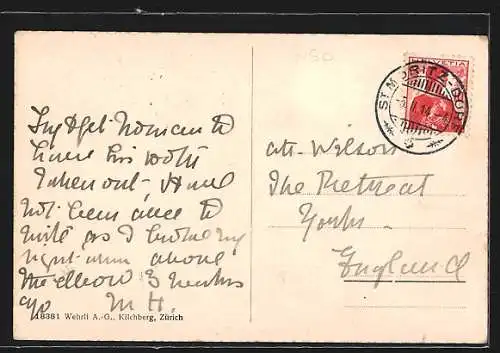 to
have his tooth
taken out, & had
not been able to
write as I broke my
right arm above
the elbow 3 weeks
ago M H.
18381 Wehrli A.-G., Kilchberg, Zürich
HELVETIA
ST. MORITZ-DORF
Wilson
The Retreat
Yorks
England